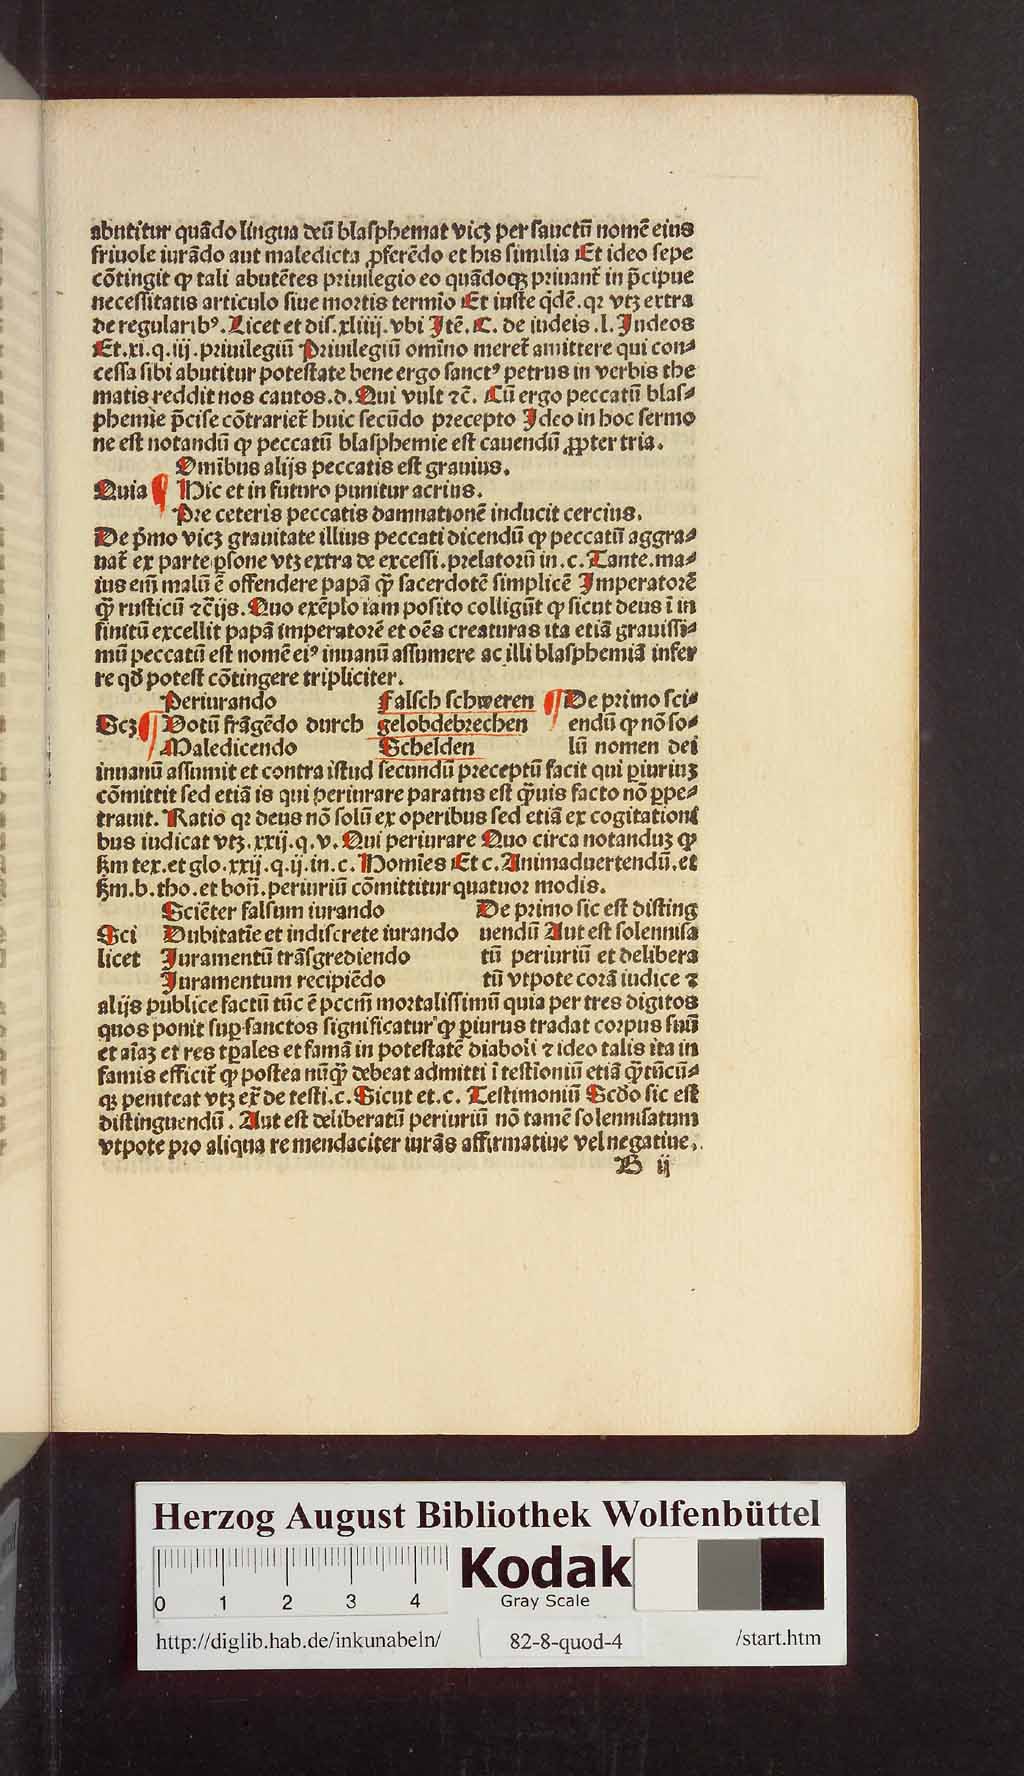 abutitur quādo lingua deū blasphemat vicꝫ per sanctū nomē eius
friuole iurādo aut maledicta ꝓferēdo et his similia Et ideo sepe
cōtingit ꝙ tali abutētes priuilegio eo quādoqꝫ priuant᷑ in p̄cipue
necessitatis articulo siue mortis termīo Et iuste q̇dē. qꝛ vtꝫ extra
de regularibꝰ. Licet et dis. xliiij. vbi Itē. C. de iudeis. l. Iudeos
Et. xi. q. iij. priuilegiū Priuilegiū omīno meret᷑ amittere qui con⸗
cessa sibi abutitur potestate bene ergo sanctꝰ petrus in verbis the
matis reddit nos cautos. d. Qui vult ⁊c̄. Cū ergo peccatū blas⸗
phemie p̄cise cōtrariet᷑ huic secūdo precepto Ideo in hoc sermo
ne est notandū ꝙ peccatū blasphemie est cauendū ꝓpter tria.
Omībus alijs peccatis est grauius.
Quia ¶ Hic et in futuro punitur acrius.
Pre ceteris peccatis damnationē inducit cercius.
De pͥmo vicꝫ grauitate illius peccati dicendū ꝙ peccatū aggra⸗
uat᷑ ex parte ꝑsone vtꝫ extra de excessi. prelatorū in. c. Tante. ma⸗
ius em̄ malū ē offendere papā qͣꝫ sacerdotē simplicē Imperatorē
qͣꝫ rusticū ⁊c̄ ijs. Quo exēplo iam posito colligūt ꝙ sicut deus ī in
finitū excellit papā imperatorē et oēs creaturas ita etiā grauissi⸗
mū peccatū est nomē eiꝰ inuanū assumere ac illi blasphemiā infer
re qd̄ potest cōtingere tripliciter.
Periurando Falsch schweren ¶ De primo sci⸗
Scꝫ ¶ Votū frāgēdo durch gelobdebrechen endū ꝙ nō so⸗
Maledicendo Schelden lū nomen dei
inuanū assumit et contra istud secundū preceptū facit qui ꝑiuriuꝫ
cōmittit sed etiā is qui periurare paratus est qͣꝫuis facto nō ꝑpe⸗
trauit. Ratio qꝛ deus nō solū ex operibus sed etiā ex cogitationi
bus iudicat vtꝫ. xxij. q. v. Qui periurare Quo circa notanduꝫ ꝙ
ẜm tex. et glo. xxij. q. ij. in. c. Homīes Et c. Animaduertendū. et
ẜm. b. tho. et bon̄. periuriū cōmittitur quatuor modis.
Sciēter falsum iurando De primo sic est disting
Sci Dubitatīe et indiscrete iurando uendū Aut est solennisa
licet Iuramentū trāsgrediendo tū periuriū et delibera
Iuramentum recipiēdo tū vtpote corā iudice ⁊
alijs publice factū tūc ē pccm̄ mortalissimū quia per tres digitos
quos ponit suꝑ sanctos significatur ꝙ ꝑiurus tradat corpus suū
et aīaꝫ et res tꝑales et famā in potestatē diaboli ⁊ ideo talis ita in
famis efficit᷑ ꝙ postea nūqͣꝫ debeat admitti ī testīoniū etiā qͣꝫtūcū⸗
qꝫ peniteat vtꝫ ex̄ de testi. c. Sicut et. c. Testimoniū Scd̄o sic est
distinguendū. Aut est deliberatū periuriū nō tamē solennisatum
vtpote pro aliqua re mendaciter iurās affirmatiue vel negatiue.
B ij
Herzog August Bibliothek Wolfenbüttel
0 1 2 3 4
Kodak
Gray Scale
http://diglib.hab.de/inkunabeln/ 82-8-quod-4 /start.htm